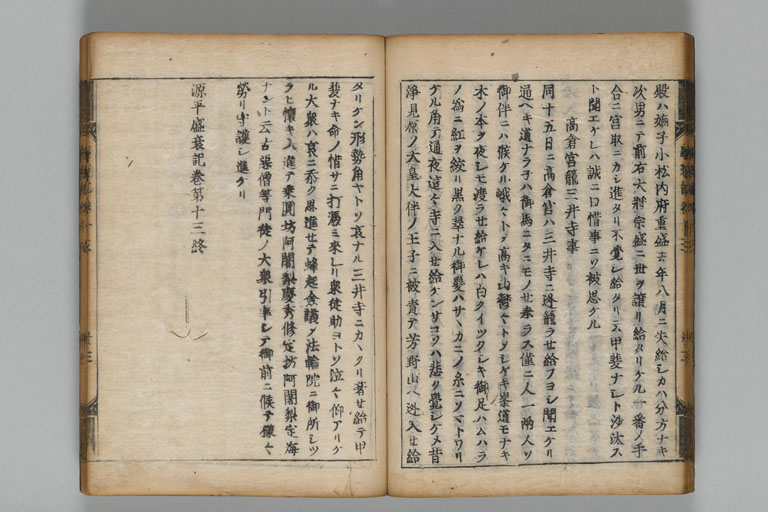 殿ハ嫡子小松内府重盛去年八月ニ失給シカハ分方ナキ
次男ニテ前右大将宗盛ニ世ヲ譲リ給タリケル一番ノ手
合ニ宮取ニカシ進タリ不覚シ給タリト云甲斐ナシト沙汰ス
ト聞エケレハ誠ニ口惜事ニソ被思ケル
高倉宮籠三井寺事
同十五日ニ高倉宮ハ三井寺ニ逃籠ラセ給フヨシ聞エケリ
過ヘキ道ナラネハ御馬ニタニモノセ奉ラス僅ニ人一両人ソ
御伴ニハ候ケル峨々トノ高キ山鬱々トシケキ峯道モナキ
木ノ本ヲ夜シモ渡ラセ給ケレハ白クイツクシキ御足ハムハラ
ノ為ニ紅ヲ絞リ黒ク翠ナル御髪ハサヽカニノ糸ニソマトワリ
ケル角テ通夜這々寺ニ入セ給ケンサコソハ悲ク覚シケメ昔
浄見原ノ大皇大伴ノ王子ニ被責テ芳野山ヘ迯入セ給
タリケン形勢角ヤトソ哀ナル三井寺ニカヽクリ着セ給テ甲
斐ナキ命ノ惜サニ打憑ミ来レリ衆徒助ヨトソ泣々仰アリケ
ル大衆ハ哀ニ忝ク思進セテ蜂起僉議シ法輪院ニ御所シツ
ラヒ懐キ入進テ乗圓坊阿闍梨慶秀修定坊阿闍梨定海
ナント云古悪僧等門徒ノ大衆引率シテ御前ニ候テ様々
労リ守護シ進ケリ
源平盛衰記巻第十三終